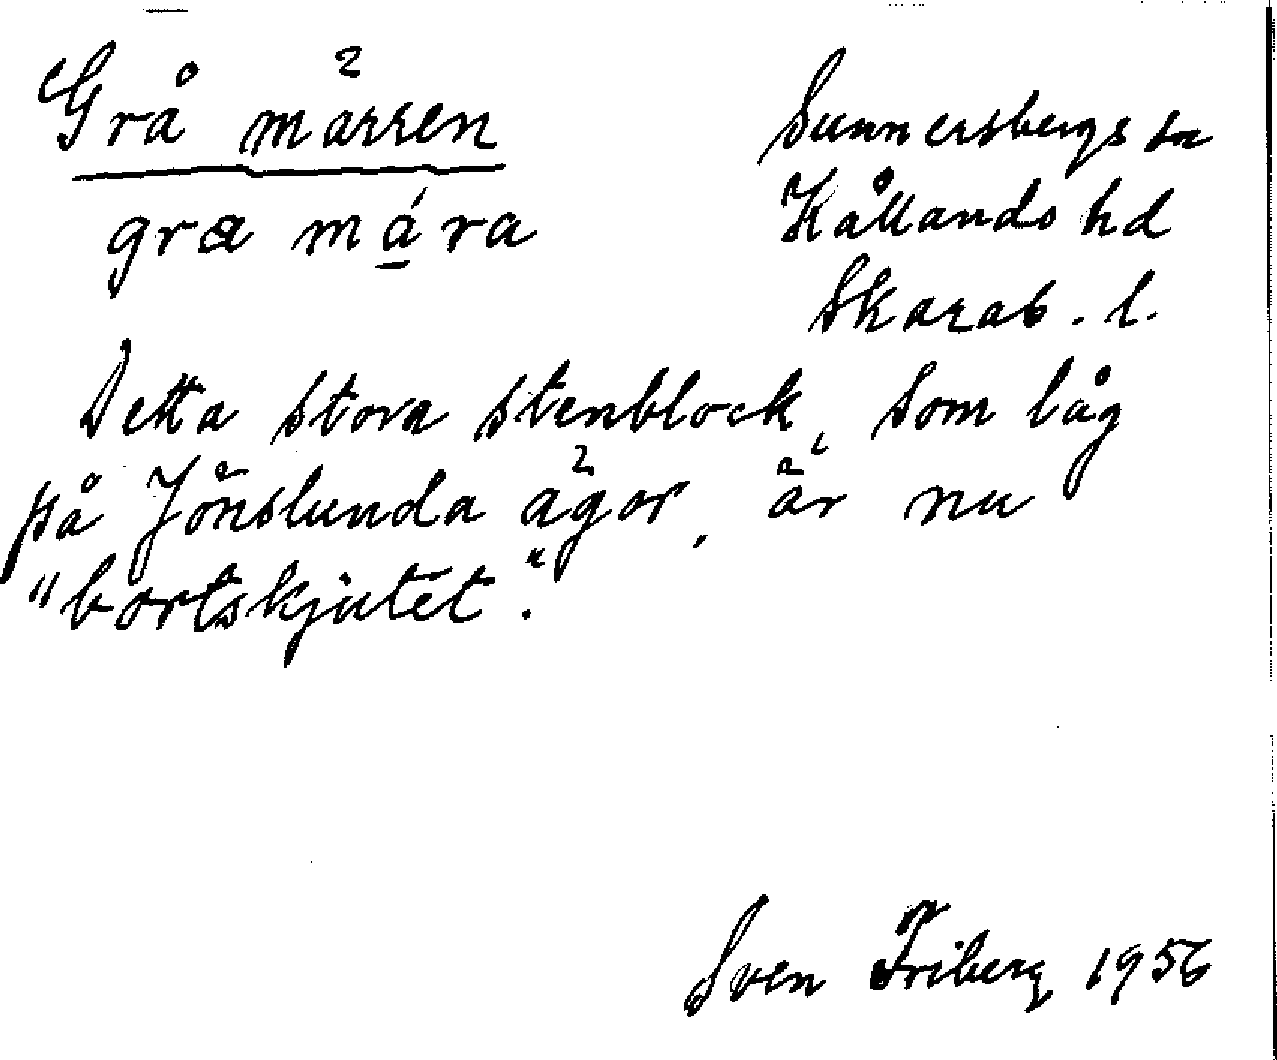 Grå märren
Sunnersbergs sn
græ mára
Kållands hd
Skarab. l.
Detta stora stenblock, som låg
på Jönslunda ägor, är nu
"bortskjutet".
Sven Friberg 1956